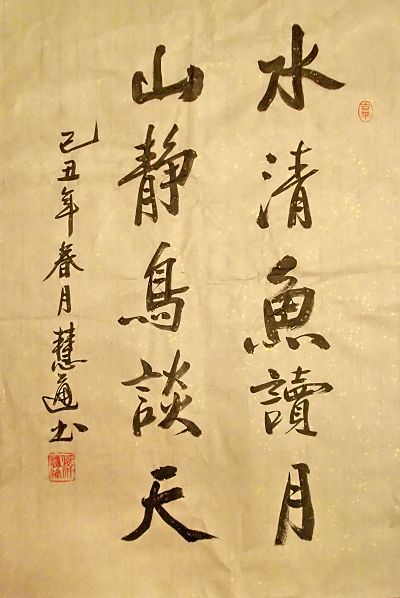 水清魚讀月
山静鳥談天
己丑年春月慧通书